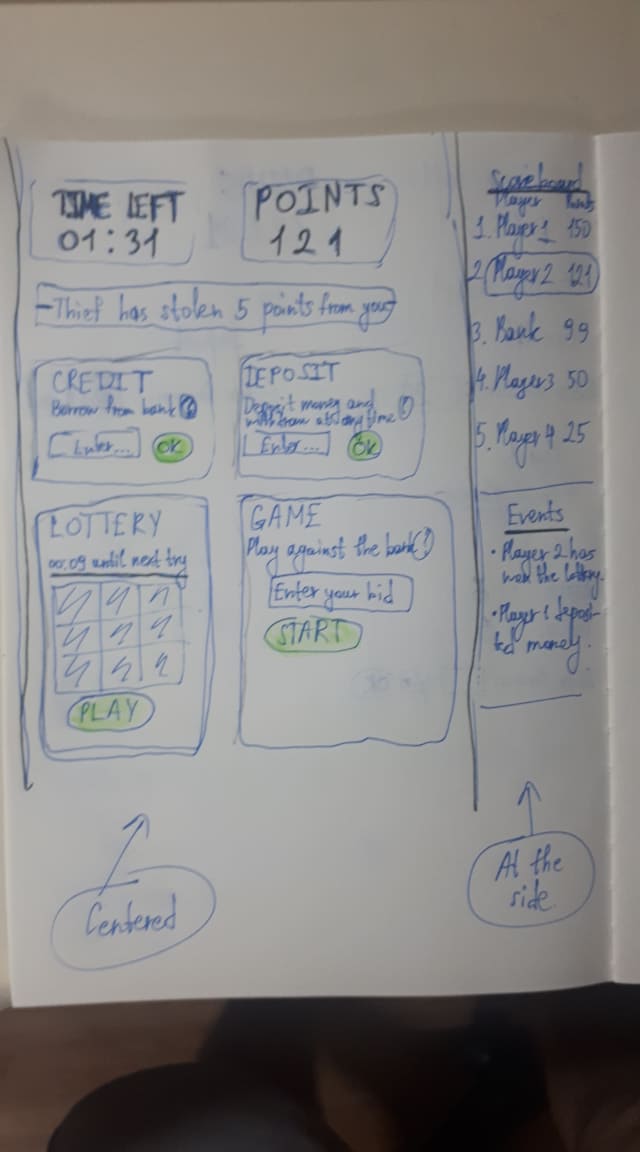 TIME LEFT
01:31
POINTS
121
-Thief has stolen 5 points from you-
CREDIT
Borrow from bank ?
Enter...
OK
DEPOSIT
Deposit money and ?
withdraw at any time
Enter...
OK
LOTTERY
00:09 until next try
PLAY
GAME
Play against the bank ?
Enter your bid
START
Scoreboard
Player Points
1. Player 1 150
2. Player 2 121
3. Bank 99
4. Player 3 50
5. Player 4 25
Events
• Player 2 has
won the lottery.
• Player 1 deposi-
ted money.
Centered
At the
side